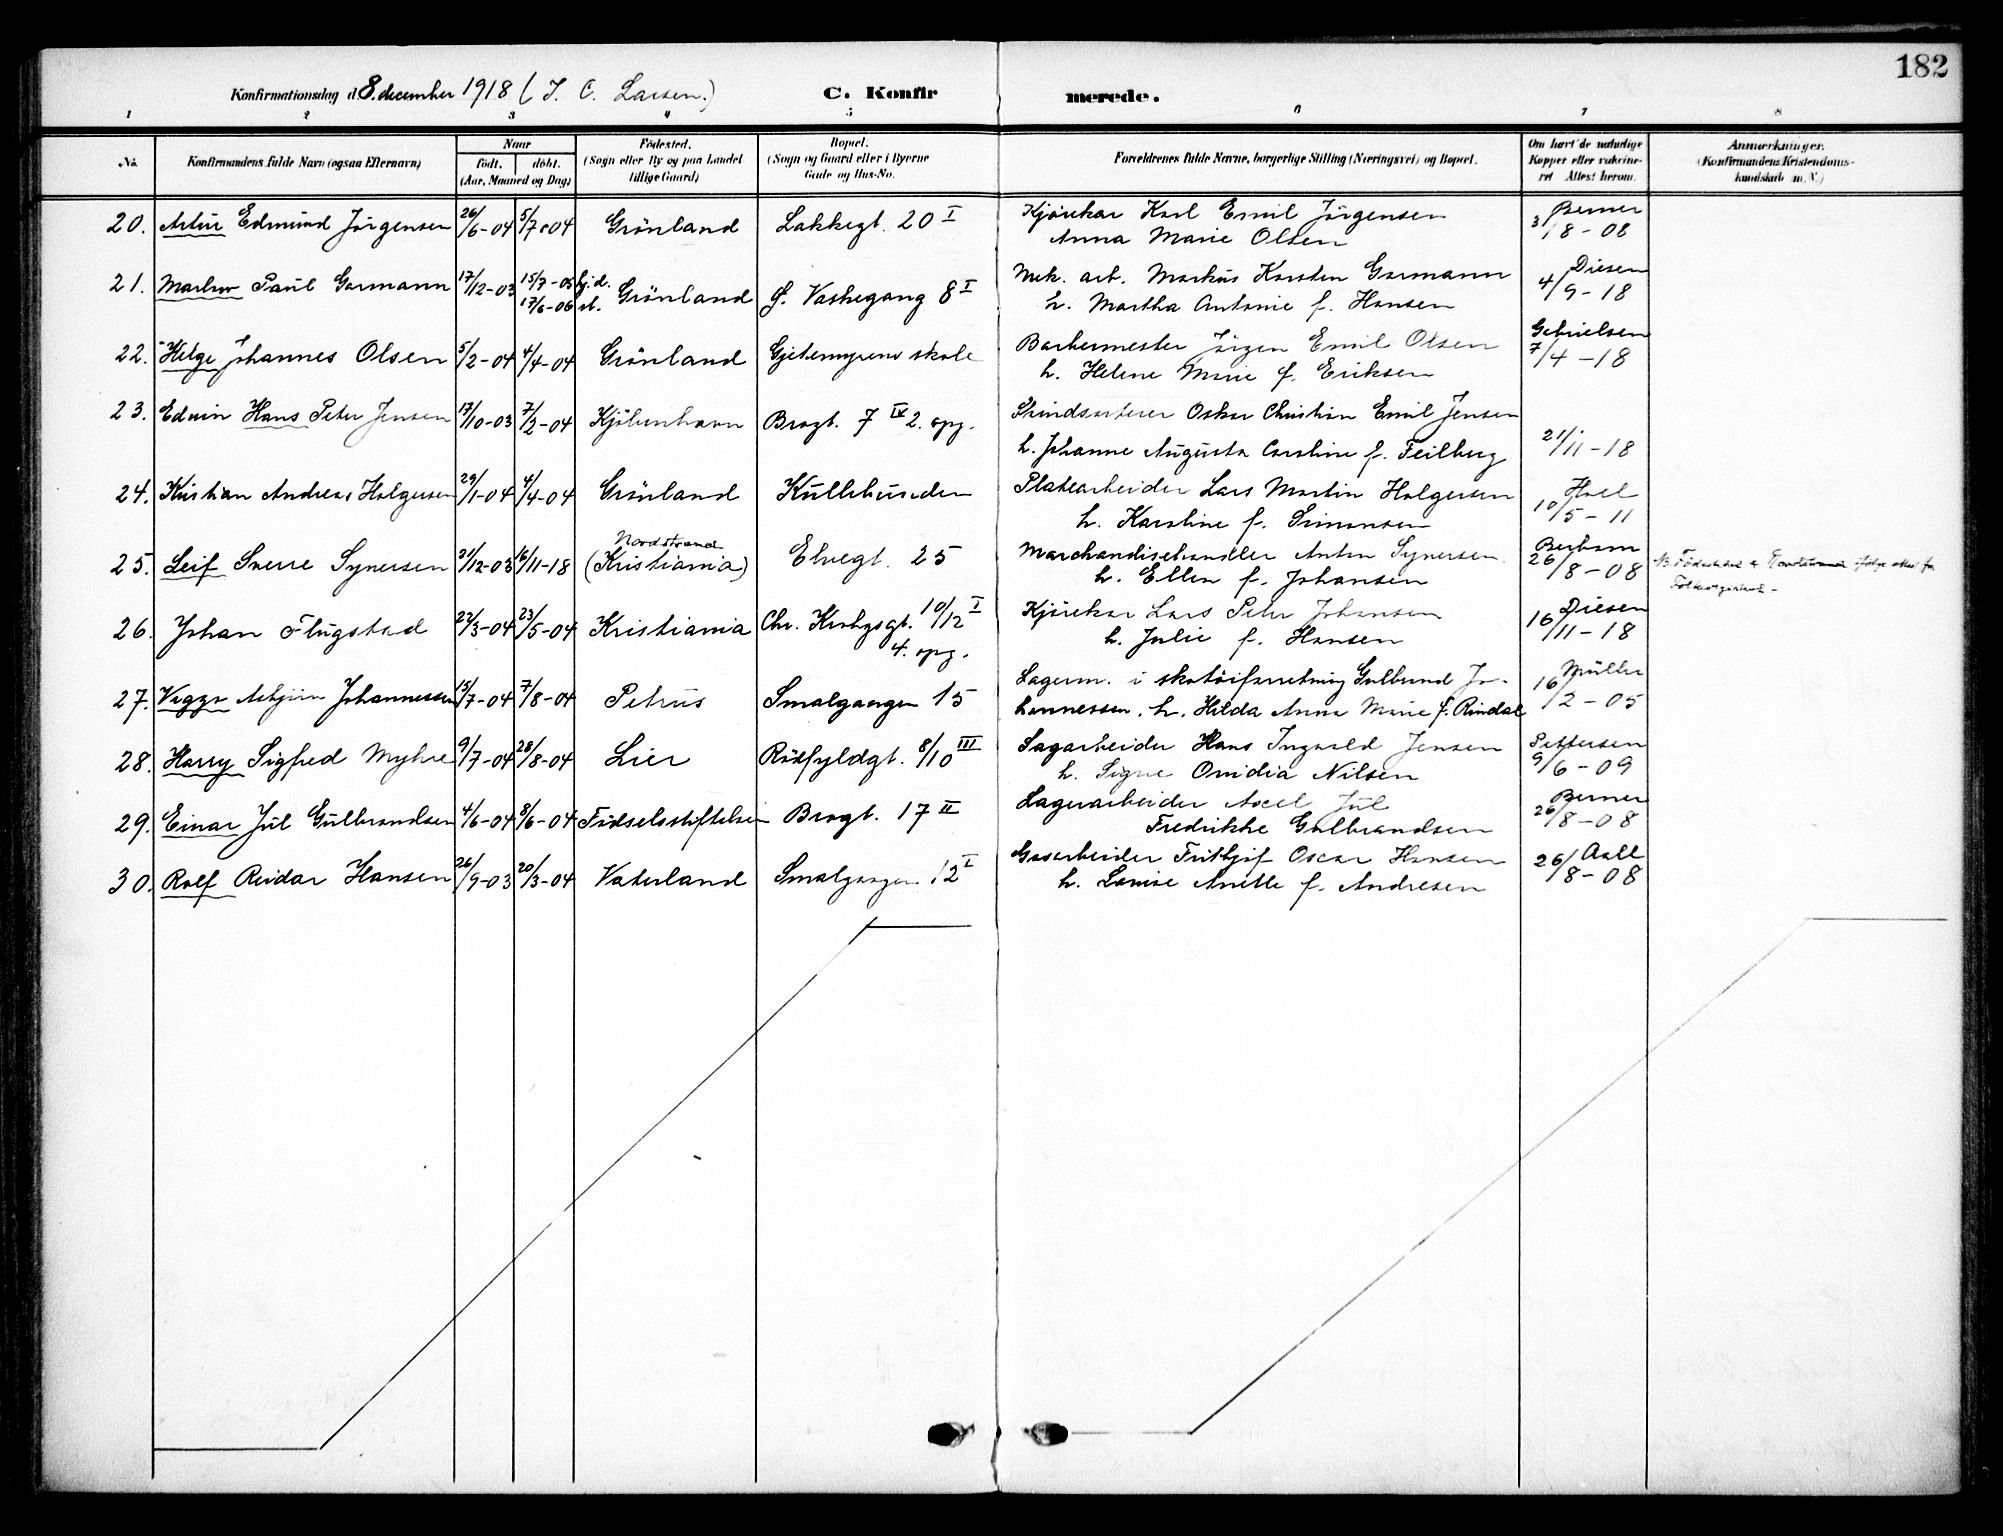 182
Konfirmationsdag d. 8. december 1918 (J. C. Larsen.) C. Konfirmerede.
1 2 3 4 5 6 7 8
No. Konfirmandens fulde Navn (ogsaa Efternavn) Naar født. døbt. (Aar, Maaned og Dag) Fødested. (Sogn eller By og paa Landet tillige Gaard) Bopæl. (Sogn og Gaard eller i Byerne Gade og Hus-No. Forældrenes fulde Navne, borgerlige Stilling (Næringsvei) og Bopæl. Om havt de naturlige Kopper eller vakcineret Attest herom. Anmærkninger. (Konfirmandens Kristendomskundskab m. V.)
20. Artur Edmund Jörgensen 26/6-04 5/7-04 Grönland Lakkegt. 20 I Kjörekar Karl Emil Jörgensen Berner
Anna Marie Olsen 3/8-08
21. Paul Gormann 17/12-03 15/7-05 hj.d. Grönland G. Vaskegang 8 I Mek. arb. Markus Karsten Gormann Diesen
17/6-06 st. h. Martha Antonie f. Hansen 4/9-18
22. Helge Johannes Olsen 5/2-04 4/4-04 Grönland Gjetemyrens skole Barbermester Jörgen Emil Olsen Gabrielsen
h. Helene Marie f. Eriksen 7/4-18
23. Edvin Hans Peter Jensen 17/10-03 7/2-04 Kjöbenhavn Brogt. 7 IV 2. opg. Skindsorterer Oskar Christian Emil Jensen
h. Johanne Augusta Caroline f. Feilberg 21/11-18
24. Kristian Andreas Holgersen 29/1-04 4/4-04 Grönland Platearbeider Lars Martin Holgersen Hall
h. Karoline f. Simonsen 10/5-11
25. Leif Sverre Synersen 31/12-03 16/11-18 Nordstrand (Kristiania) Elvegt. 25 Marchandisehandler Anton Synersen
h. Ellen f. Johansen 26/8-08 NB. Födested
26. Johan Flugstad 27/3-04 23/5-04 Kristiania Chr. Krohgsgt. 10/12 I Kjörekar Lars Peter Johansen Diesen
4. opg. h. Julie f. Hansen 16/11-18
27. Viggo Asbjörn Johannessen 15/7-04 7/8-04 Petrus Smalgangen 15 Lagerm. i skotöiforretning Gulbrand Jo- Müller
hannessen. h. Hilda Anna Marie f. Rindal 16/2-05
28. Harry Sigfred Myhre 9/7-04 28/8-04 Lier Rödfyldgt. 8/10 III Sagarbeider Hans Ingvald Jensen Pettersen
h. Signe Ovidia Nilsen 9/6-09
29. Einar Jul Gulbrandsen 4/6-04 8/6-04 Födselsstiftelsen Brogt. 17 II Lagerarbeider Axel Jul Berner
Fredrikke Gulbrandsen 26/8-08
30. Rolf Reidar Hansen 26/9-03 20/3-04 Vaterland Smalgangen 12 I Gasarbeider Frithjof Oscar Hansen Aall
h. Lovise Anette f. Andresen 26/8-08